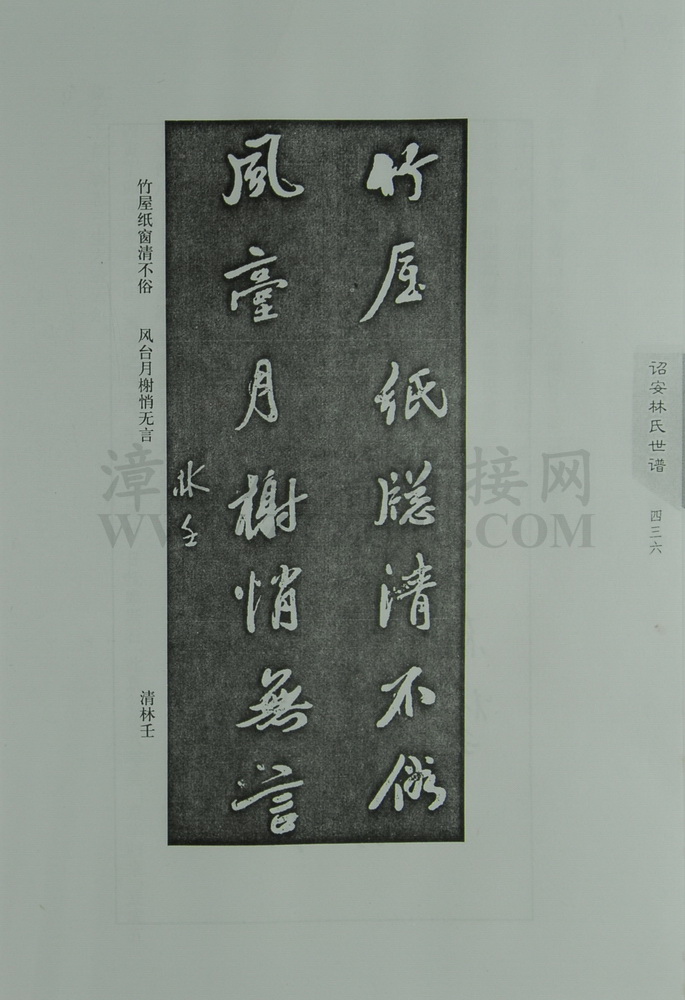 竹屋紙窓清不俗
風臺月榭悄無言
林壬
竹屋纸窗清不俗　风台月榭悄无言
清林壬
诏安林氏世谱
四三六
漳 接网
WWW. .COM